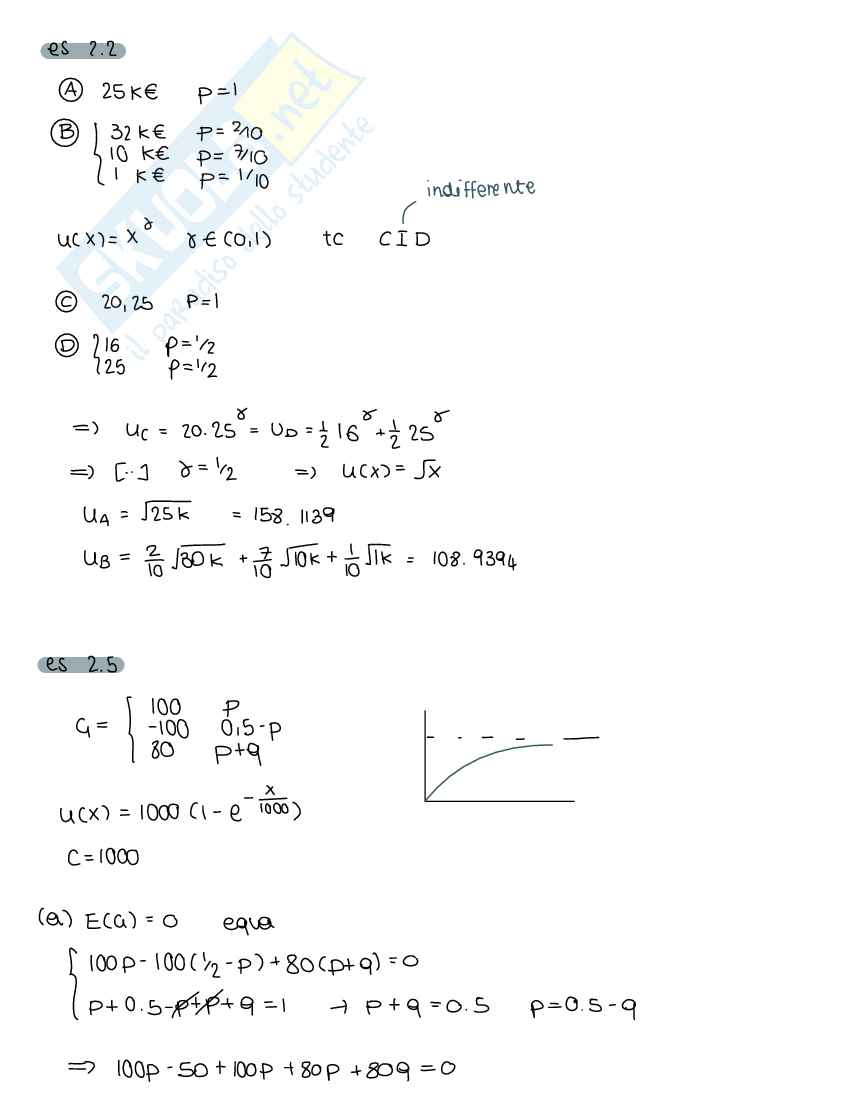 es 2.2
Ⓐ 25k€ p=1
Ⓑ { 32k€ p=2/10
10 k€ p=7/10
1 k€ p=1/10
indifferente
u(x)=x^γ γ∈(0,1) tc C I D
Ⓒ 20,25 p=1
Ⓓ { 16 p=1/2
25 p=1/2
=> u_C = 20.25^γ = U_D = 1/2 16^γ + 1/2 25^γ
=> [..] γ=1/2 => u(x)=√x
u_A = √25k = 158.1139
u_B = 2/10 √30k + 7/10 √10k + 1/10 √1k = 108.9394
es 2.5
G = { 100 p
-100 0,5-p
80 p+q
u(x) = 1000 (1-e^(-x/1000))
C=1000
(a) E(G)=0 equa
{ 100p-100(1/2-p)+80(p+q)=0
p+0.5-p+p+q=1 → p+q=0.5 p=0.5-q
=> 100p-50+100p+80p+80q=0
SKUOLA.net
il paradiso dello studente